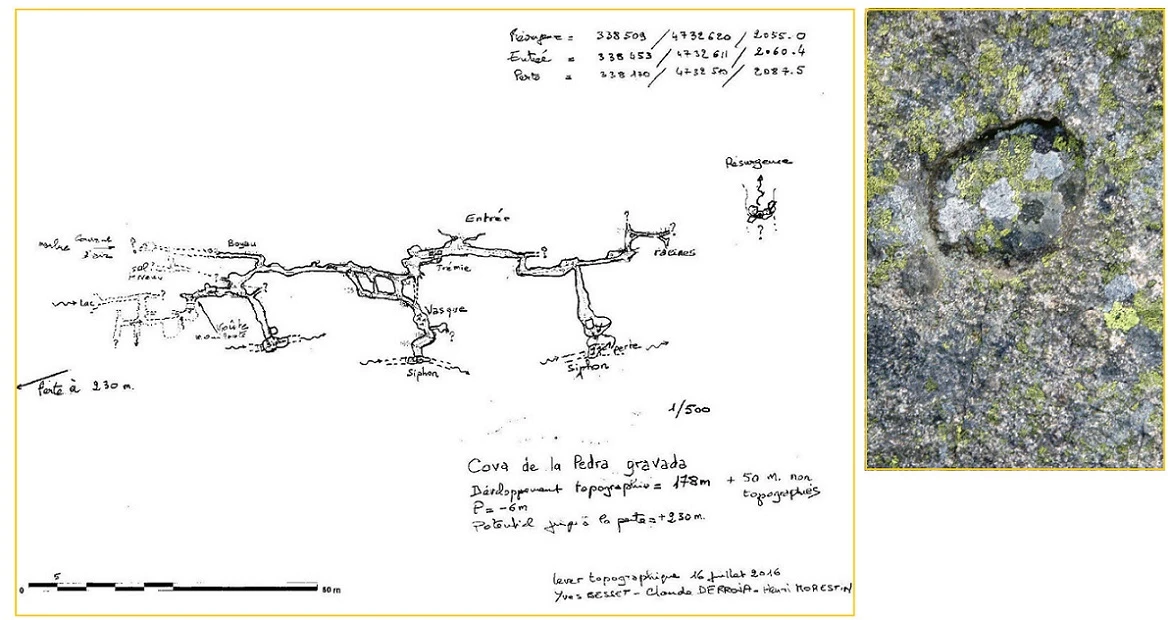 Résurgence = 338509 / 4732620 / 2055.0
Entrée = 338453 / 4732611 / 2060.4
Perte = 338130 / 4732510 / 2087.5
Résurgence
?
Entrée
?
?
racines
?
Boyau
?
Trémie
Lac
?
Voûte
Vasque
?
?
perte
Siphon
Siphon
Perte à 230 m.
1/500
Cova de la Pedra gravada
Développement topographié = 178m + 50 m. non topographiés
P = -6m
Potentiel jusqu'à la perte = +230m.
0 5 50 m
lever topographique 16 juillet 2016
Yves BESSET - Claude DERROJA - Henri MORESTIN